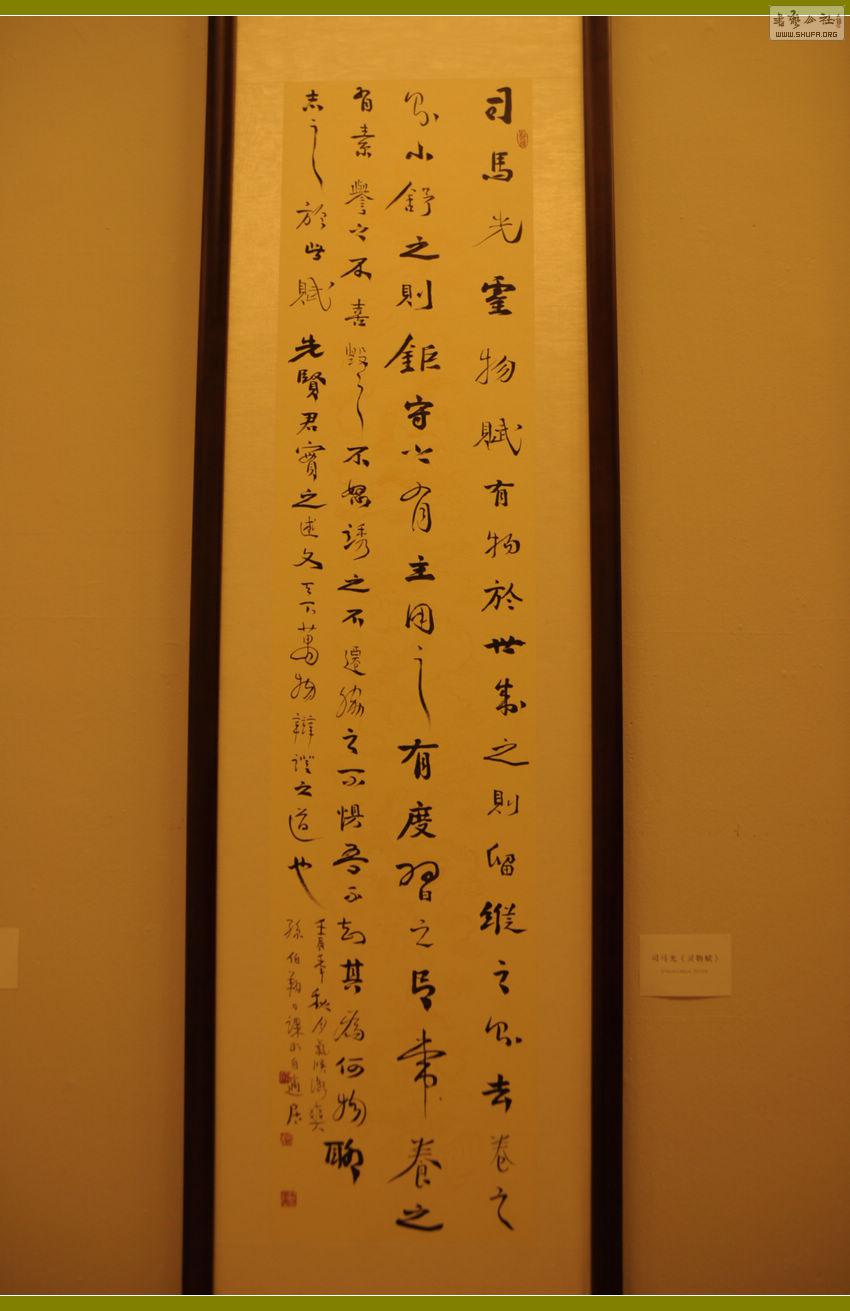 司馬光靈物賦有物於世制之則留縱之則去卷之
則小舒之則鉅守之有主用之有度習之有常養之
有素譽之不喜毀之不怒誘之不遷脅之不懼吾不知其為何物聊
志之於此賦先賢君實之述文天下萬物辯證之道也
孫伯翔
課於自適居
司马光《灵物赋》
書法公社
WWW.SHUFA.ORG